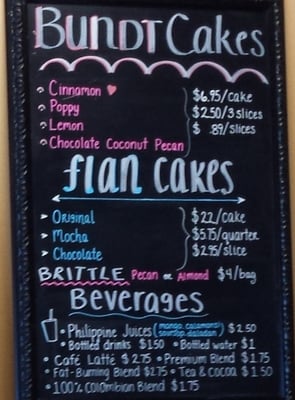 BUNDT Cakes
Cinnamon ♥
Poppy
Lemon
Chocolate Coconut Pecan
$6.95/cake
$2.50/3 slices
$ .89/slices
flan cakes
Original
Mocha
Chocolate
$22/cake
$5.75/quarter
$2.95/slice
BRITTLE Pecan or Almond $4/bag
Beverages
• Philippine Juices (mango, calamansi, $2.50
• Bottled drinks $1.50 • Bottled water $1
• Café Latté $2.75 • Premium Blend $1.75
• Fat-Burning Blend $2.75 • Tea & Cocoa $1.50
• 100% Colombian Blend $1.75